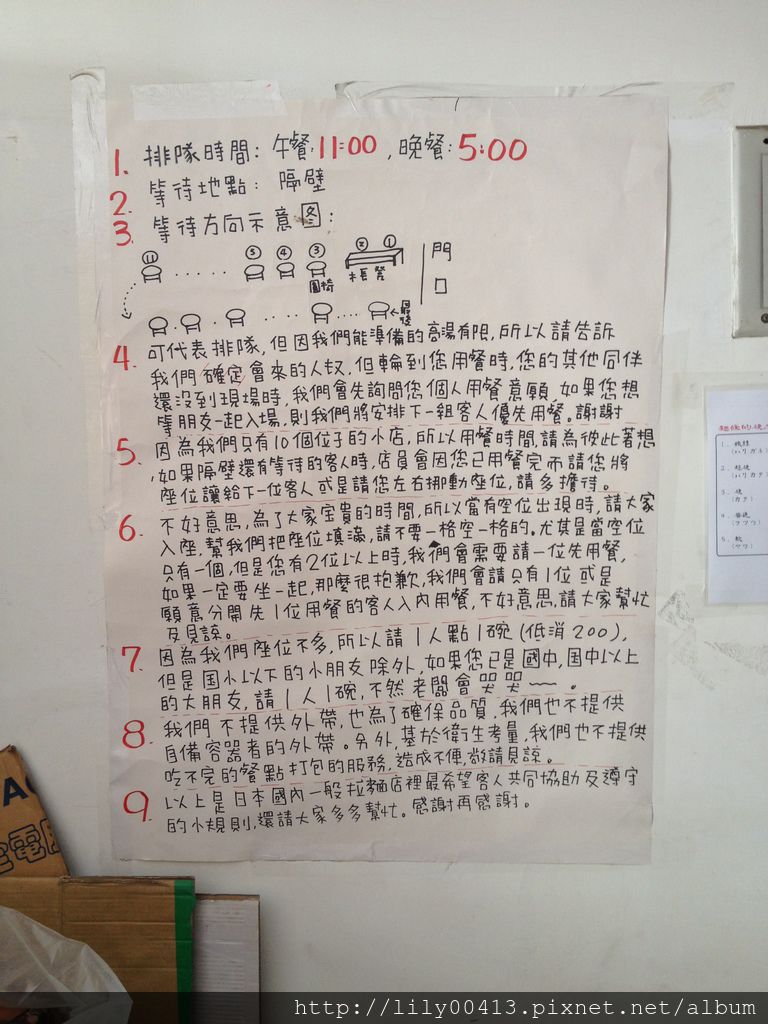 1. 排隊時間: 午餐:11:00 , 晚餐: 5:00
2. 等待地點: 隔壁
3. 等待方向示意圖:
⑪ ..... ⑤ ④ ③ ② ① 門
圓椅 木長凳 口
最後
4. 可代表排隊,但因我們能準備的高湯有限,所以請告訴
我們確定會來的人数,但輪到您用餐時,您的其他同伴
還沒到現場時,我們會先詢問您個人用餐意願,如果您想
等朋友一起入場,則我們將安排下一組客人優先用餐。謝謝
5. 因為我們只有10個位子的小店,所以用餐時間,請為彼此著想
,如果隔壁還有等待的客人時,店員會因您已用餐完而請您將
座位讓給下一位客人或是請您左右挪動座位,請多擔待。
6. 不好意思,為了大家宝貴的時間,所以當有空位出現時,請大家
入座,幫我們把座位填滿,請不要一格空一格的。尤其是當空位
只有一個,但是您有2位以上時,我們會需要請一位先用餐,
如果一定要坐一起,那麼很抱歉,我們會請只有1位或是
願意分開先1位用餐的客人入內用餐,不好意思,請大家幫忙
及見諒。
7. 因為我們座位不多,所以請1人點1碗(低消200),
但是国小以下的小朋友除外,如果您已是國中,国中以上
的大朋友,請1人1碗,不然老闆會哭哭~~。
8. 我們不提供外帶,也為了確保品質,我們也不提供
自備容器者的外帶。另外,基於衛生考量,我們也不提供
吃不完的餐點打包的服務,造成不便,敬請見諒。
9. 以上是日本國內一般拉麵店裡最希望客人共同協助及遵守
的小規則,還請大家多多幫忙。感謝再感謝。
1. 
2. 
3. 硬
(カタ)
4. 普通
(フツウ)
5. 軟
(ヤワ)
http://lily00413.pixnet.net/album